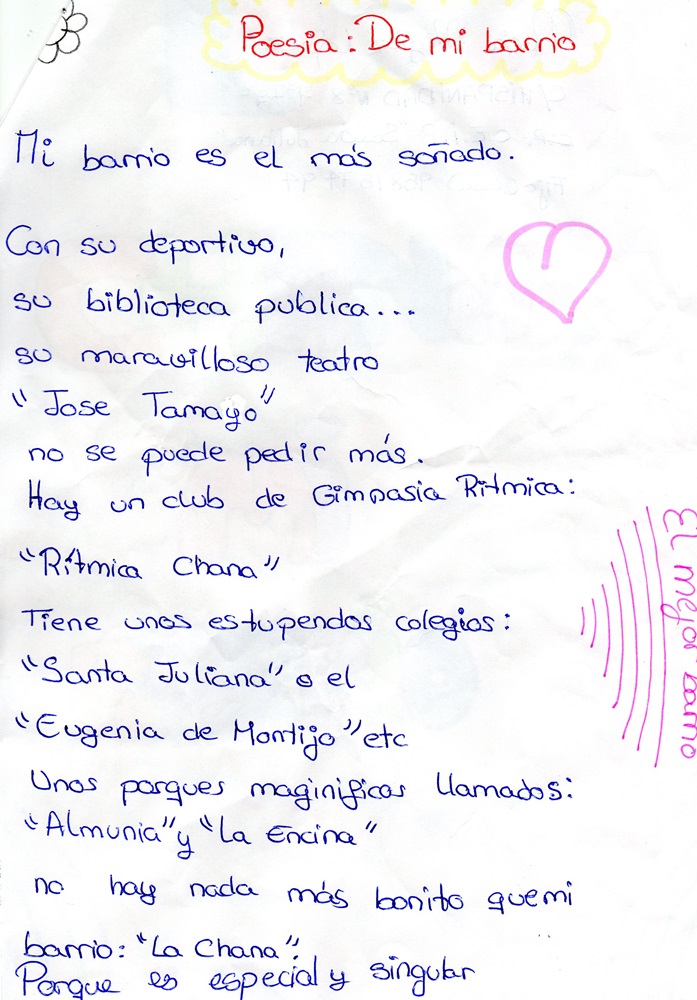 Poesia: De mi barrio
Mi barrio es el más soñado.
Con su deportivo,
su biblioteca publica...
su maravilloso teatro
"Jose Tamayo"
no se puede pedir más.
Hay un club de Gimnasia Ritmica:
"Rítmica Chana"
Tiene unos estupendos colegios:
"Santa Juliana" o el
"Eugenia de Montijo" etc
Unos parques maginificos llamados:
"Almunia" y "La Encina"
no hay nada más bonito que mi
barrio: "La Chana".
Porque es especial y singular
El mejor barrio